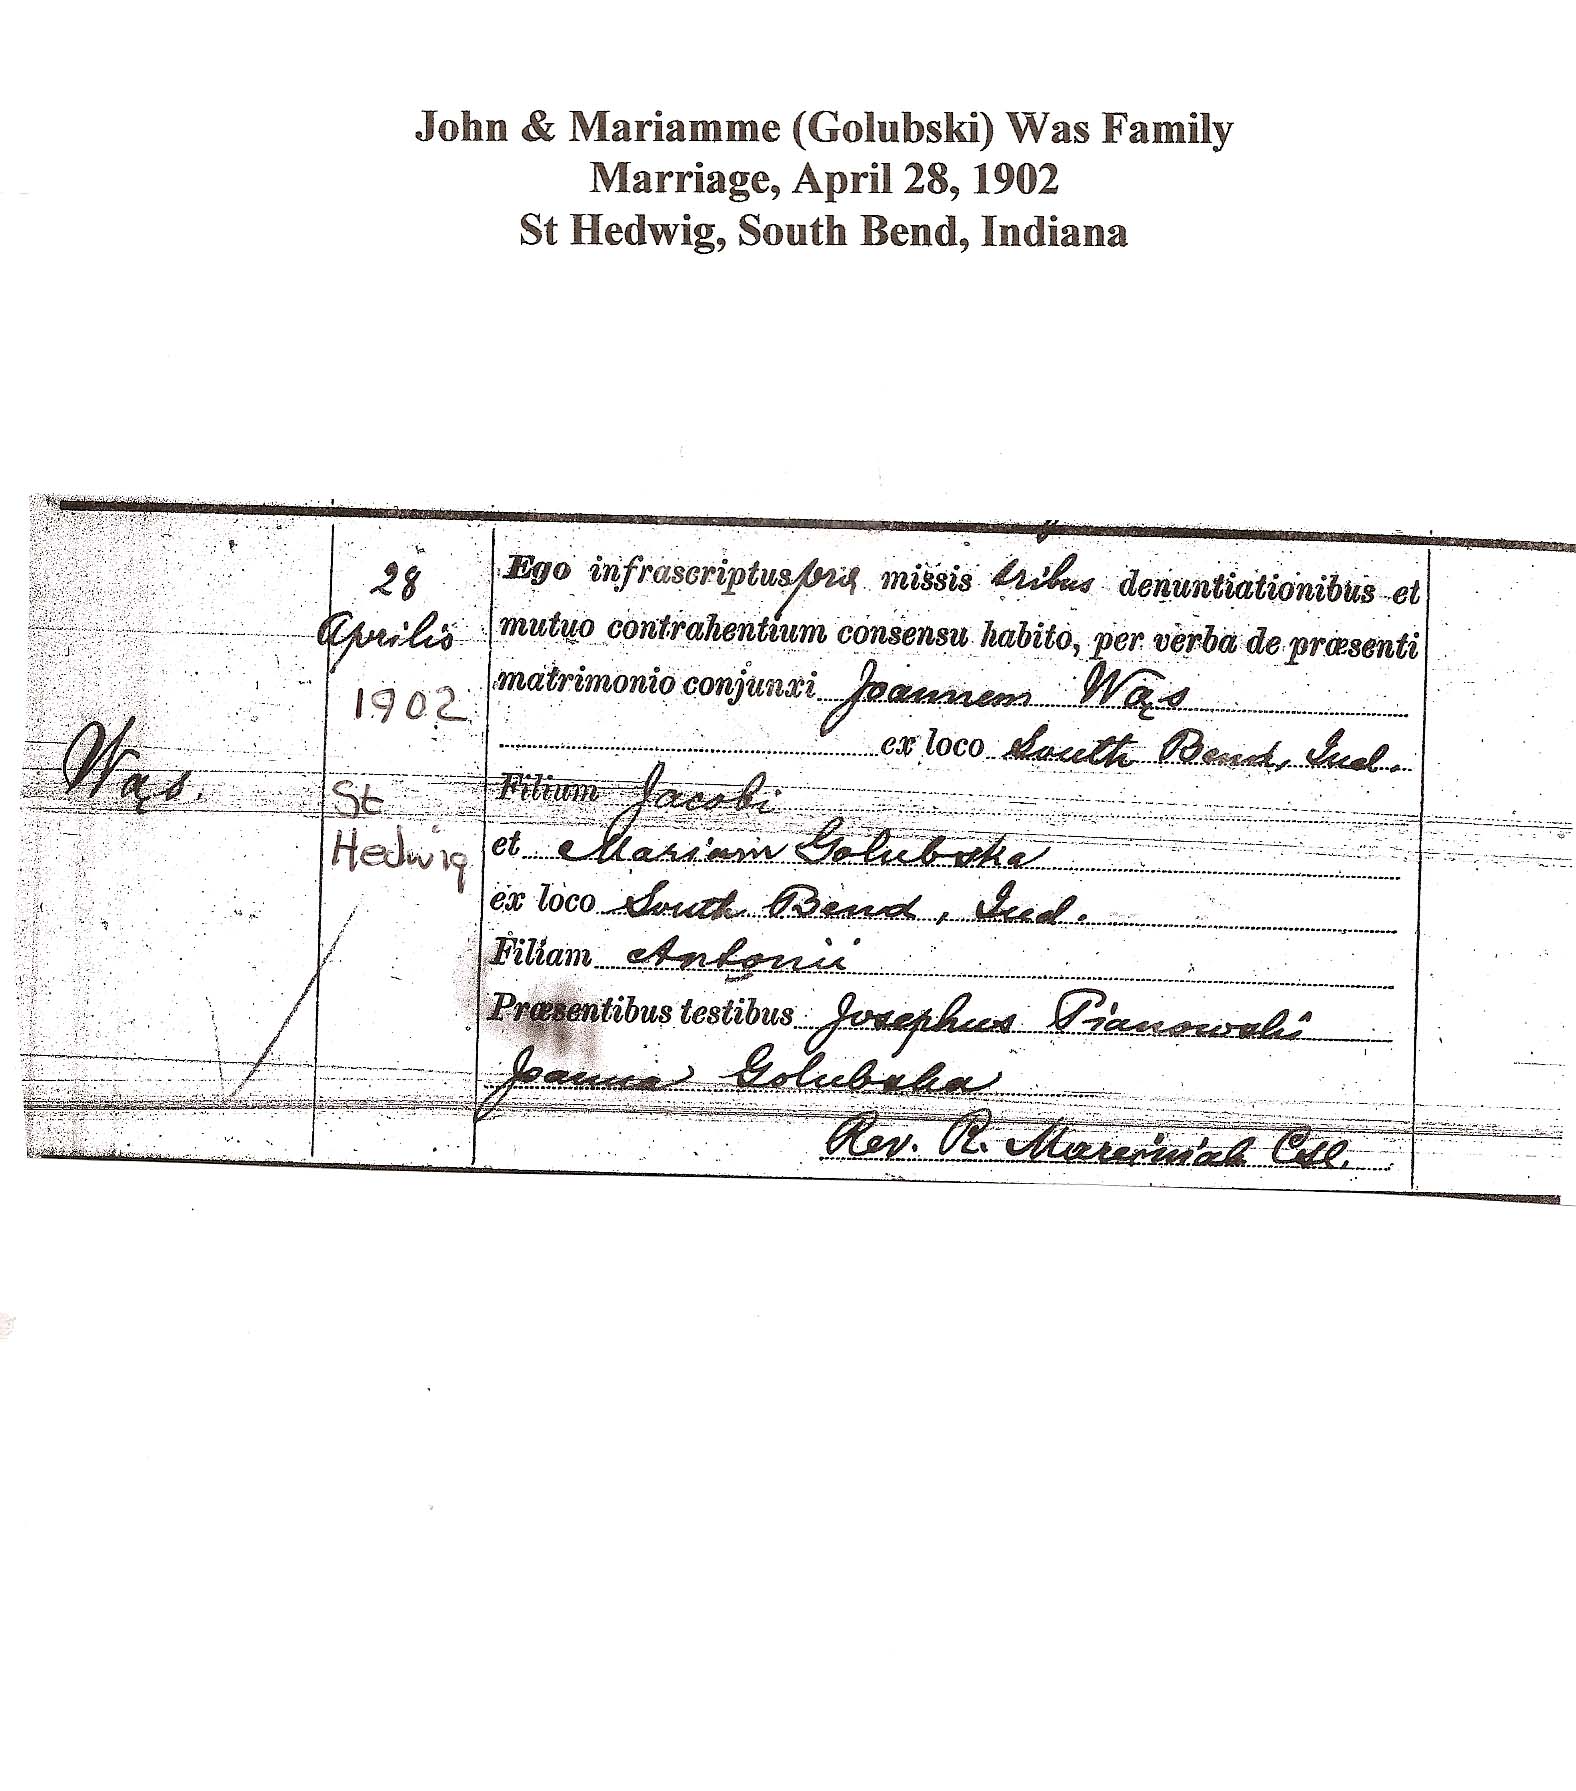 John & Mariamme (Golubski) Was Family
Marriage, April 28, 1902
St Hedwig, South Bend, Indiana
Wąs.
28
Aprilis
1902
St
Hedwig
Ego infrascriptus præ missis tribus denuntiationibus et
mutuo contrahentium consensu habito, per verba de præsenti
matrimonio conjunxi Joannem Wąs
ex loco South Bend, Ind.
Filium Jacobi
et Mariam Golubska
ex loco South Bend, Ind.
Filiam Antonii
Præsentibus testibus Josephus Pianowski
Joanna Golubska
Rev. R. Marciniak CSC.